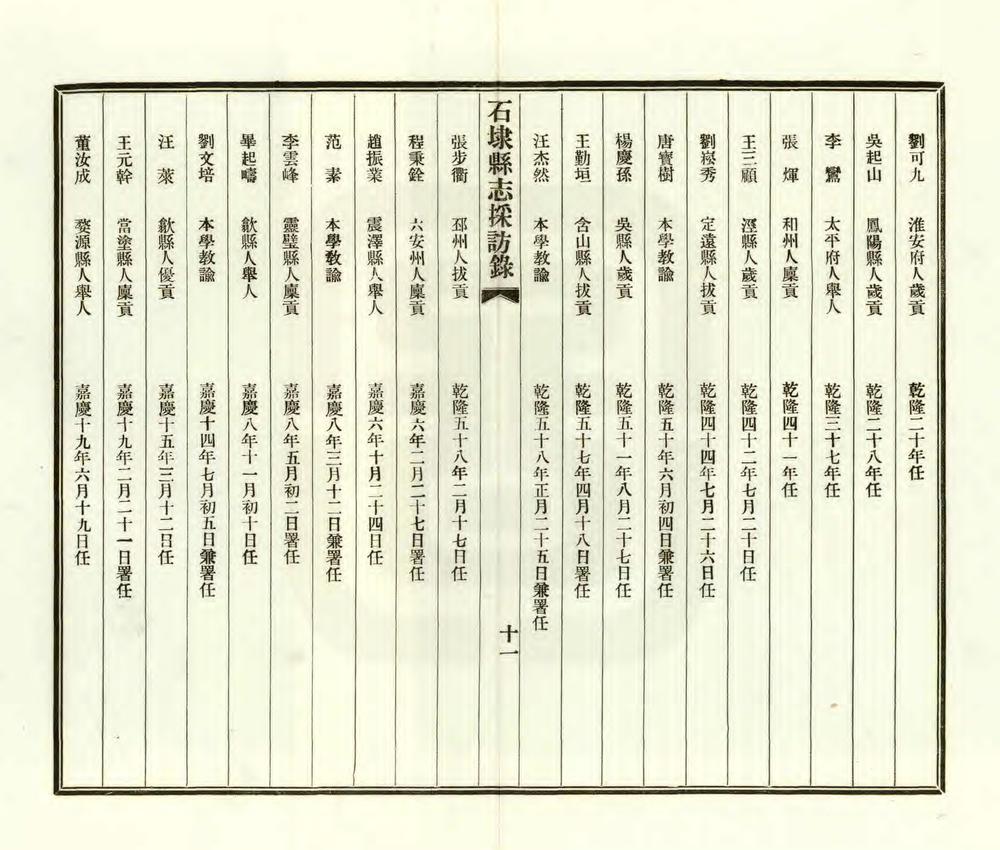 劉可九　淮安府人歲貢　乾隆二十年任
吳起山　鳳陽縣人歲貢　乾隆二十八年任
李　鸞　太平府人舉人　乾隆三十七年任
張　煇　和州人廩貢　乾隆四十一年任
王三顧　涇縣人歲貢　乾隆四十二年七月二十日任
劉崧秀　定遠縣人拔貢　乾隆四十四年七月二十六日任
唐寳樹　本學教諭　乾隆五十年六月初四日兼署任
楊慶孫　吳縣人歲貢　乾隆五十一年八月二十七日任
王勤垣　含山縣人拔貢　乾隆五十七年四月十八日署任
汪杰然　本學教諭　乾隆五十八年正月二十五日兼署任
石埭縣志採訪錄　十一
張步衢　邳州人拔貢　乾隆五十八年二月十七日任
程秉銓　六安州人廩貢　嘉慶六年二月二十七日署任
趙振業　震澤縣人舉人　嘉慶六年十月二十四日任
范　素　本學教諭　嘉慶八年三月十二日兼署任
李雲峰　靈璧縣人廩貢　嘉慶八年五月初二日署任
畢起疇　歙縣人舉人　嘉慶八年十一月初十日任
劉文培　本學教諭　嘉慶十四年七月初五日兼署任
汪　萊　歙縣人優貢　嘉慶十五年三月十二日任
王元幹　當塗縣人廩貢　嘉慶十九年二月二十一日署任
董汝成　婺源縣人舉人　嘉慶十九年六月十九日任